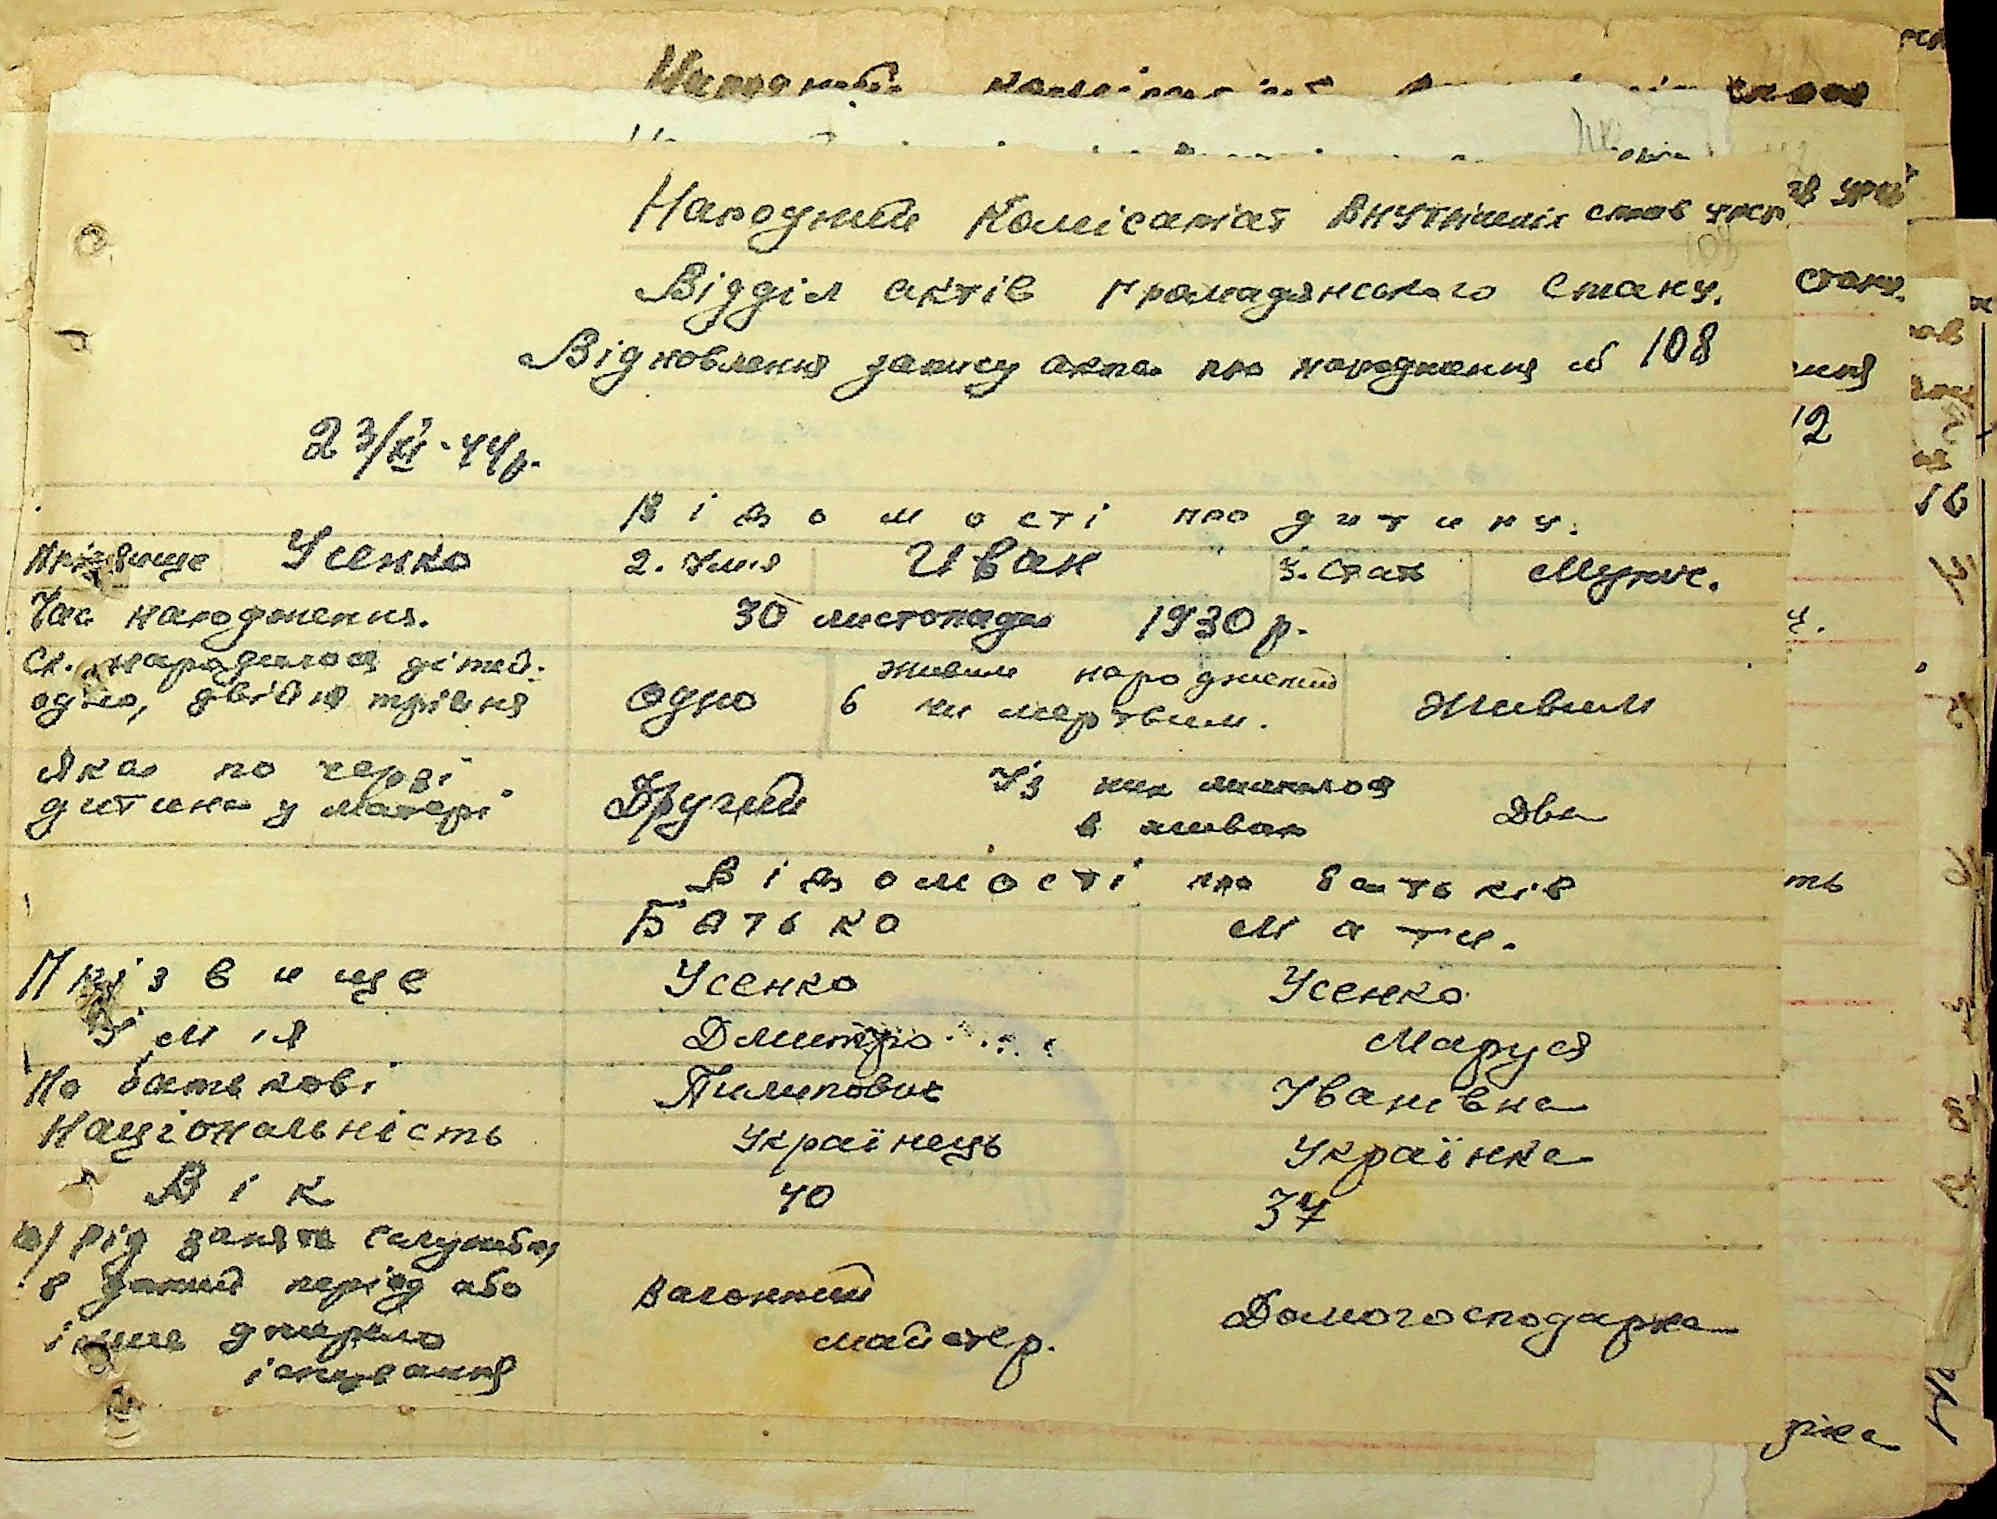 Народний Комісаріат Внутрішніх справ УРСР
108
Відділ актів громадянського стану.
Відновлення запису акта про народження № 108
23/XI-44р.
Відомості про дитину.
Прізвище Усенко 2. Имя Иван 3. Стать Мужс.
Час народження. 30 листопада 1930 р.
Ск. народилося дітей:
одно, двійня трійня Одно 6 живим народжений
чи мертвим. живим
Яка по черзі
дитина у матері Другий Із них лишилося
в живих Два
Відомості про батьків
Батько Мати.
Прізвище Усенко Усенко
Імія Дмитро Маруся
По батькові Пилипович Іванівна
Національність Українець Українка
Вік 40 37
а/ рід занять службы
в даний період або
інше джерело
існування
Вагонний
майстер.
Домогосподарка